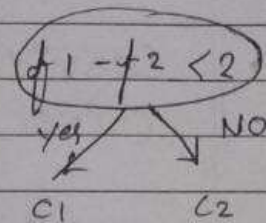 f1 - f2 < 2
Yes NO
C1 C2